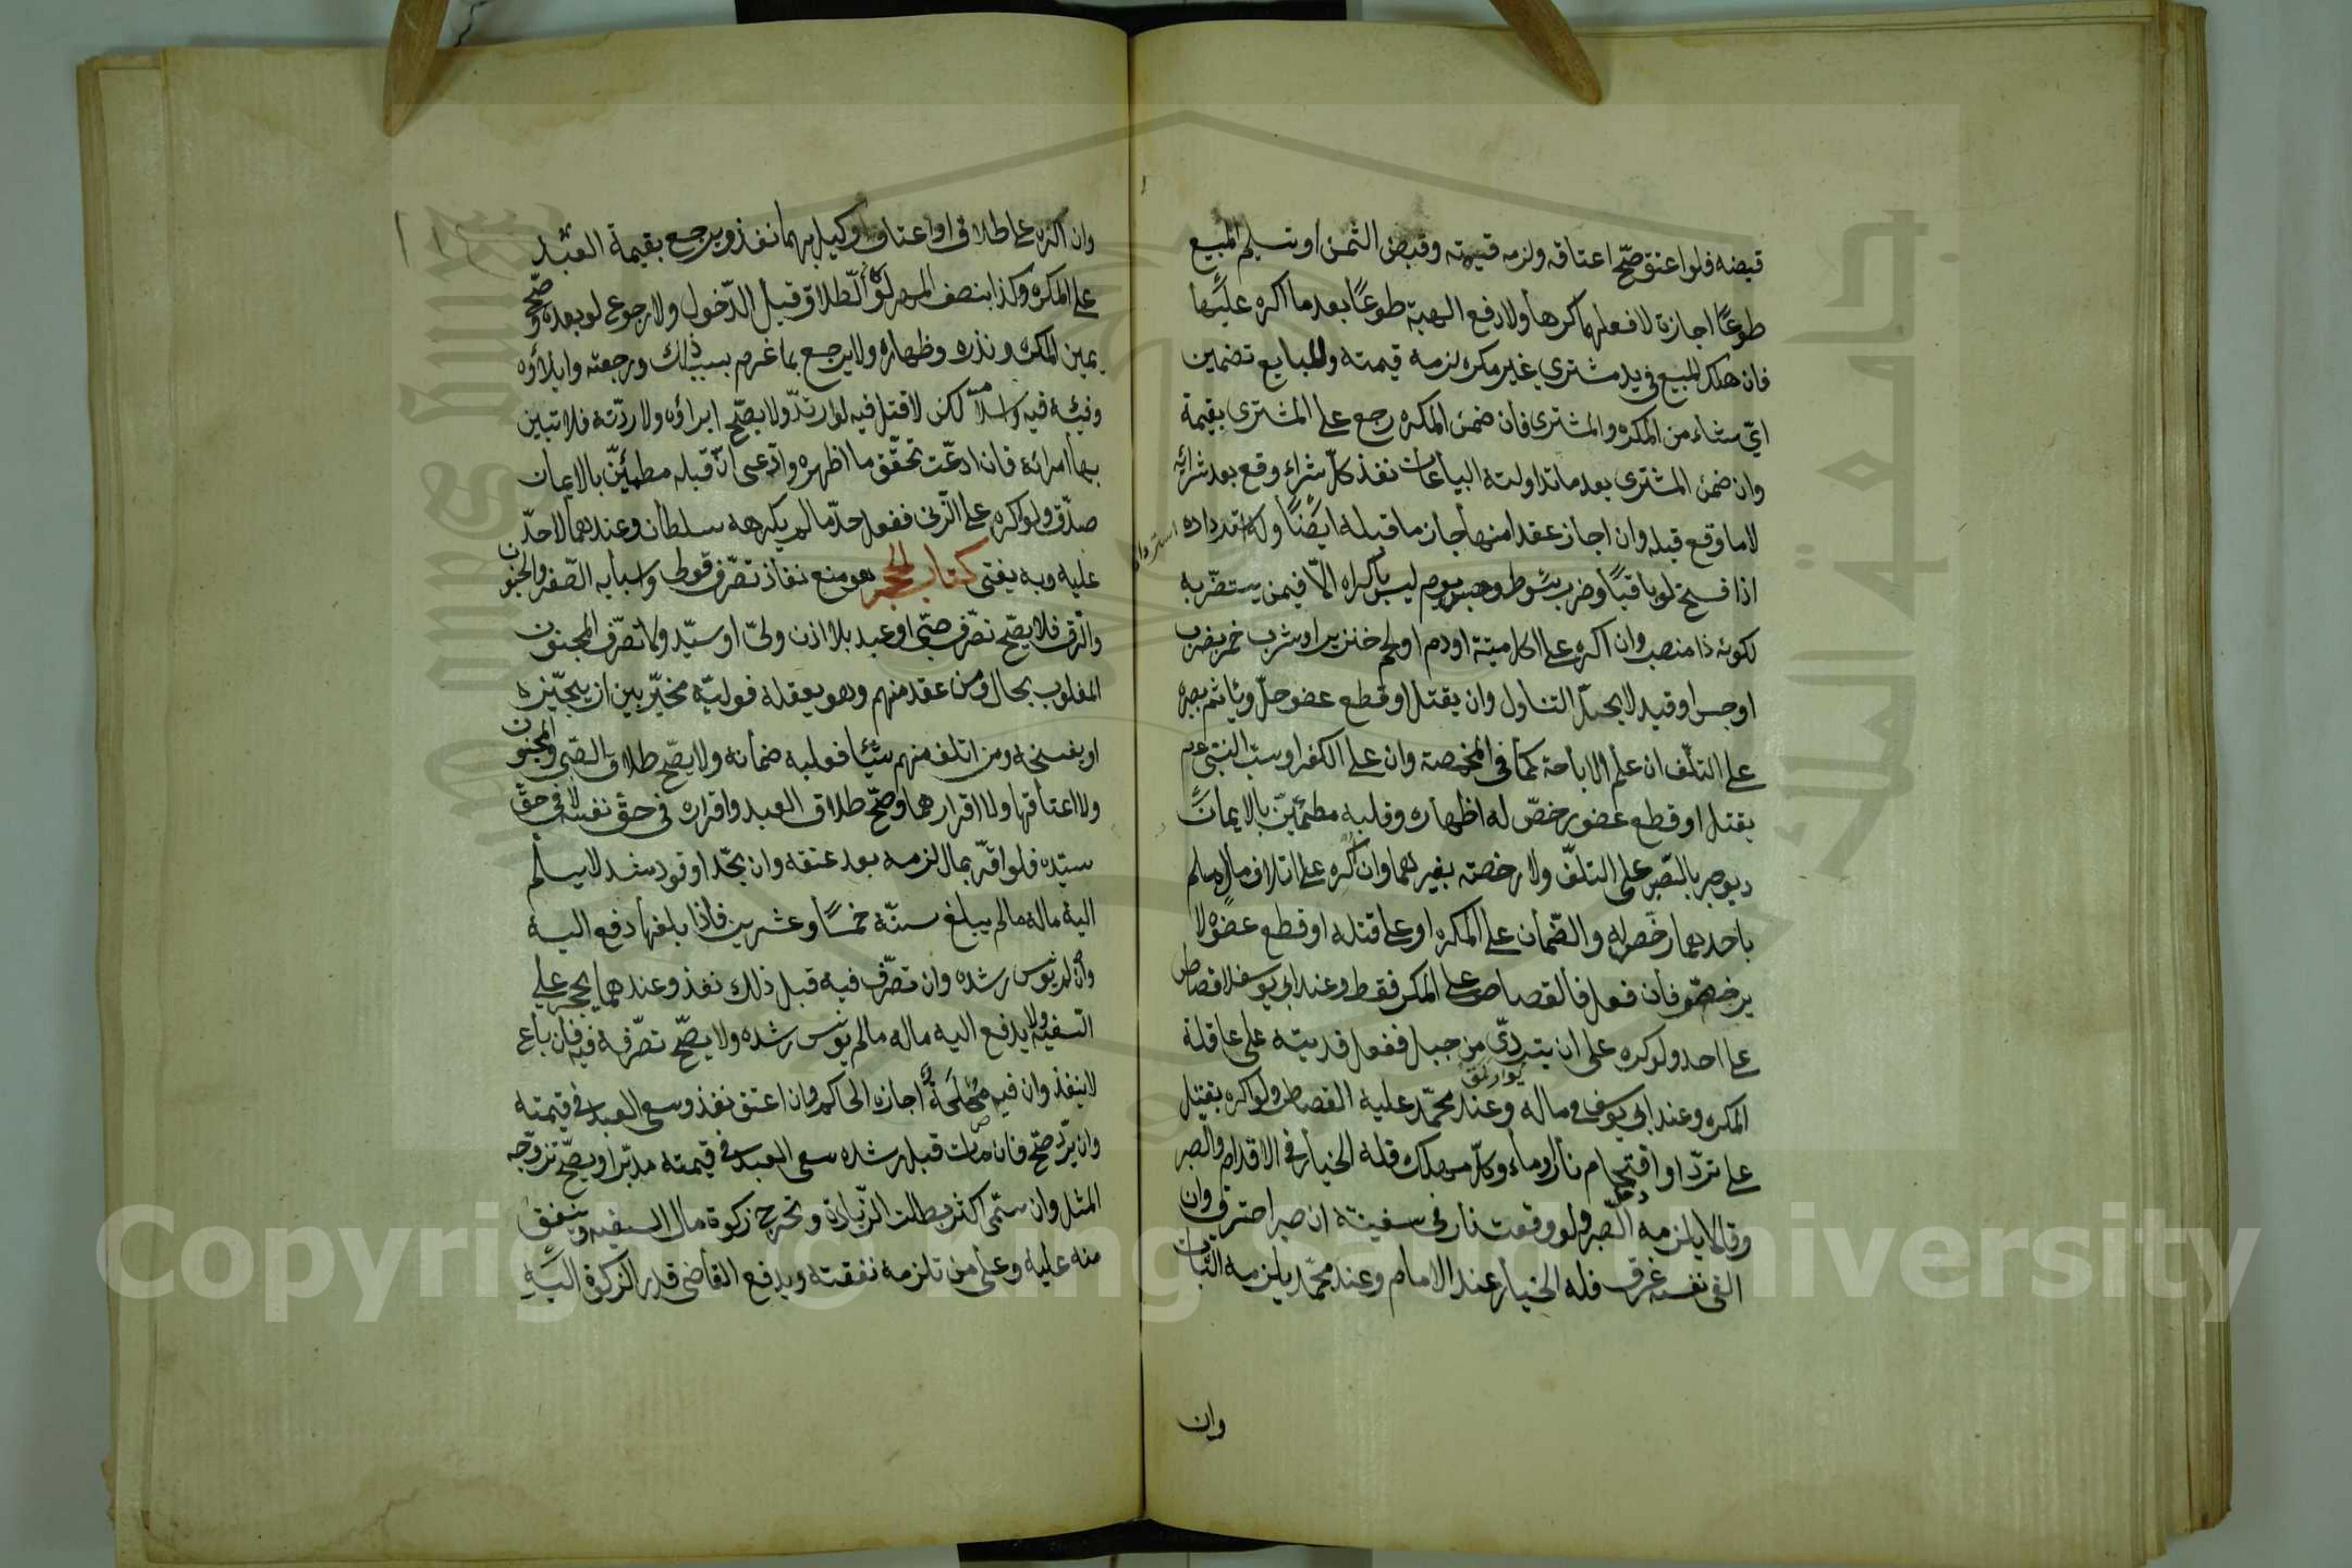 قبضه فلو اعتق صحّ اعتاقه ولزمه قيمته وقبض الثمن او تسليم المبيع
طوعًا اجازة لا فعلهما كرها ولا دفع الهبة طوعًا بعد ما اكره عليها
فان هلك المبيع في يد مشتري غير مكره لزمه قيمته وللبايع تضمين
ايّ شاء من المكره والمشترى فان ضمن المكره رجع على المشترى بقيمة
وان ضمن المشترى بعد ما تداولته البياعات نفذ كلّ شراء وقع بعد شرائه
لا ما وقع قبله وان اجاز عقدا منها جاز ما قبله ايضًا وله استرداده
اذا فسخ لو باقيًا وضرب سوط وحبس يوم ليس باكراه الّا فيمن يستضرّ به
لكونه ذا منصب وان اكره على اكل ميتة او دم او لحم خنزير او شرب خمر بضرب
او حبس او قيد لا يحلّ التناول وان بقتل او قطع عضو حلّ وياثم بصبره
على التلف ان علم الاباحة كما في المخمصة وان على الكفر او سبّ النبيّ عم
بقتل او قطع عضو رخّص له اظهاره وقلبه مطمئنّ بالايمان
ويوجر بالصّبر على التلف ولا رخصة بغيرهما وان اكره على اتلاف مال مسلم
باحدهما رخّص له والضّمان على المكره او على قتله او قطع عضوه لا
يرخّص فان فعل فالقصاص على المكره فقط وعند ابي يوسف لا قصاص
على احد ولو اكره على ان يتردّى من جبل ففعل فديته على عاقلة
المكره وعند ابي يوسف في ماله وعند محمّد عليه القصاص ولو اكره بقتل
على تردّ او اقتحام نار او ماء وكلّ مهلك فله الخيار في الاقدام والصبر
وقالا يلزمه الصّبر ولو وقعت نار في سفينة ان صبر احترق وان
القى نفسه غرق فله الخيار عند الامام وعند محمّد يلزمه الثّبات
وان
وان اكره على طلاق او اعتاق او توكيل بهما نفذ ويرجع بقيمة العبد
على المكره وكذا بنصف المهر لو الطّلاق قبل الدّخول ولا رجوع لو بعده وصحّ
يمين المكره ونذره وظهاره ولا يرجع بما غرم بسبب ذلك ورجعته وايلاؤه
وفيئه فيه واسلامه لكن لا قتل فيه لو ارتدّ ولا يصحّ ابراؤه ولا ردّته فلا تبين
بها امراته فان ادعّت تحقّق ما اظهره وادّعى انّ قبله مطمئنّ بالايمان
صدّق ولو اكره على الزّنى ففعل حدّ ما لم يكرهه سلطان وعندهما لا حدّ
عليه وبه يفتى كتاب الحجر هو منع نفاذ تصرّف قولى واسبابه الصّغر والجنون
والرّق فلا يصحّ تصرّف صبّى او عبد بلا اذن ولىّ او سيّد ولا تصرّف المجنون
المغلوب بحال ومن عقد منهم وهو يعقله فوليّه مخيّر بين ان يجيزه
او يفسخه ومن اتلف منهم شيئا فعليه ضمانه ولا يصحّ طلاق الصّبى والمجنون
ولا اعتاقهما ولا اقرارهما وصحّ طلاق العبد واقراره في حقّ نفسه لا في حقّ
سيّده فلو اقرّ بمال لزمه بعد عتقه وان بحّد او قود
اليه ماله ما لم يبلغ سنّه خمسًا وعشرين فاذا بلغها دفع اليه
وان لم يونس رشده وان تصرّف فيه قبل ذلك نفذ وعندهما يحجر على
السّفيه ولا يدفع اليه ماله ما لم يونس رشده ولا يصحّ تصرّفه فيه فان باع
لا ينفذ وان فيه مصلحة اجازه الحاكم وان اعتق نفذ وسعى العبد في قيمته
وان دبّر صحّ فان مات قبل رشده سعى العبد في قيمته مدبّرا ويصحّ تزوّجه
المثل وان سمّى اكثر بطلت الزّيادة وتخرج زكوة مال السفيه وينفق
منه عليه وعلى من تلزمه نفقته ويدفع القاضى قدر الزكوة اليه
Copyright © King Saud University
جامعة الملك سعود